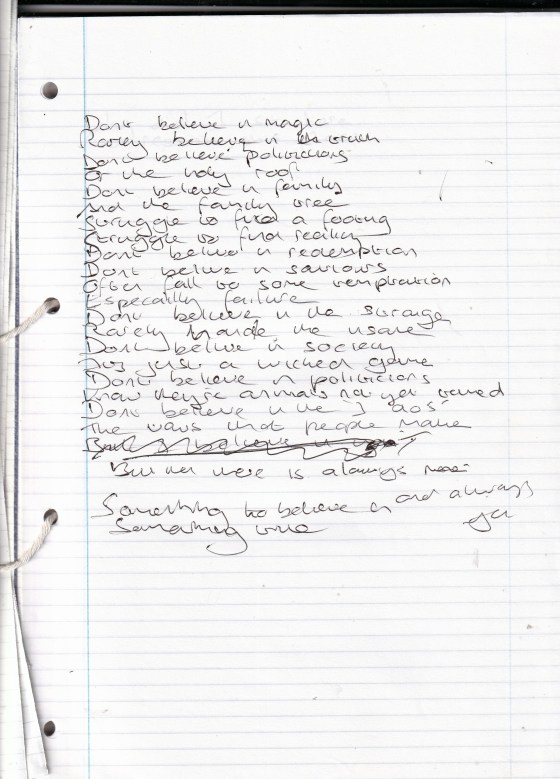 Dont believe in magic
Rarely believe in the truth
Dont believe politicians
Or the holy roof
Dont believe in family
And the family tree
Struggle to find a footing
Struggle to find reality
Dont believe in redemption
Dont believe in saviours
Often fall to some temptation
Especially failure
Dont believe in the strange
Rarely handle the
Dont believe in society
just a wicked game
Dont believe in politicians
Know they're animals not yet tamed
Dont believe in the
The ways that people make
But I believe in
But there is always
Something to believe in and always
Something true